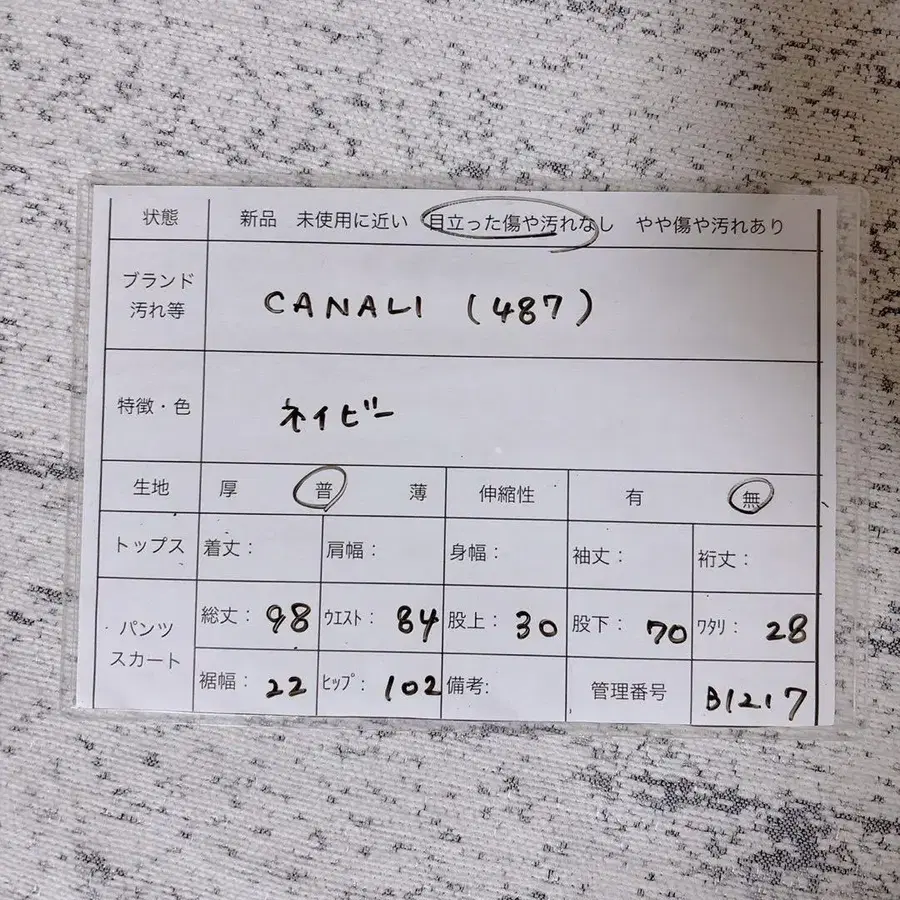 状態 新品 未使用に近い 目立った傷や汚れなし やや傷や汚れあり
ブランド
汚れ等
CANALI (487)
特徴・色 ネイビー
生地 厚 普 薄 伸縮性 有 無
トップス 着丈: 肩幅: 身幅: 袖丈: 裄丈:
パンツ
スカート
総丈: 98 ウエスト: 84 股上: 30 股下: 70 ワタリ: 28
裾幅: 22 ヒップ: 102 備考: 管理番号 B1217